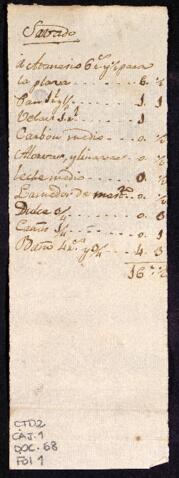 Savado
a Atanacio 6 r.s y ½ para
la plaza - - - - 6. ½
Pan 1 y ½ - - - - 1 1
Velas 1 r.l - - - - 1
Carbon medio - - 0. ½
- - 0. ½
leche medio - - 0. ½
- - 0. ½
Dulce ¼ - - - - 0. 0
¼ - - - 0. 1
4 r.s y ¾ - - 4. 3
16 r.s ½
CTD2
CAJ. 1
DOC. 68
FOL 1